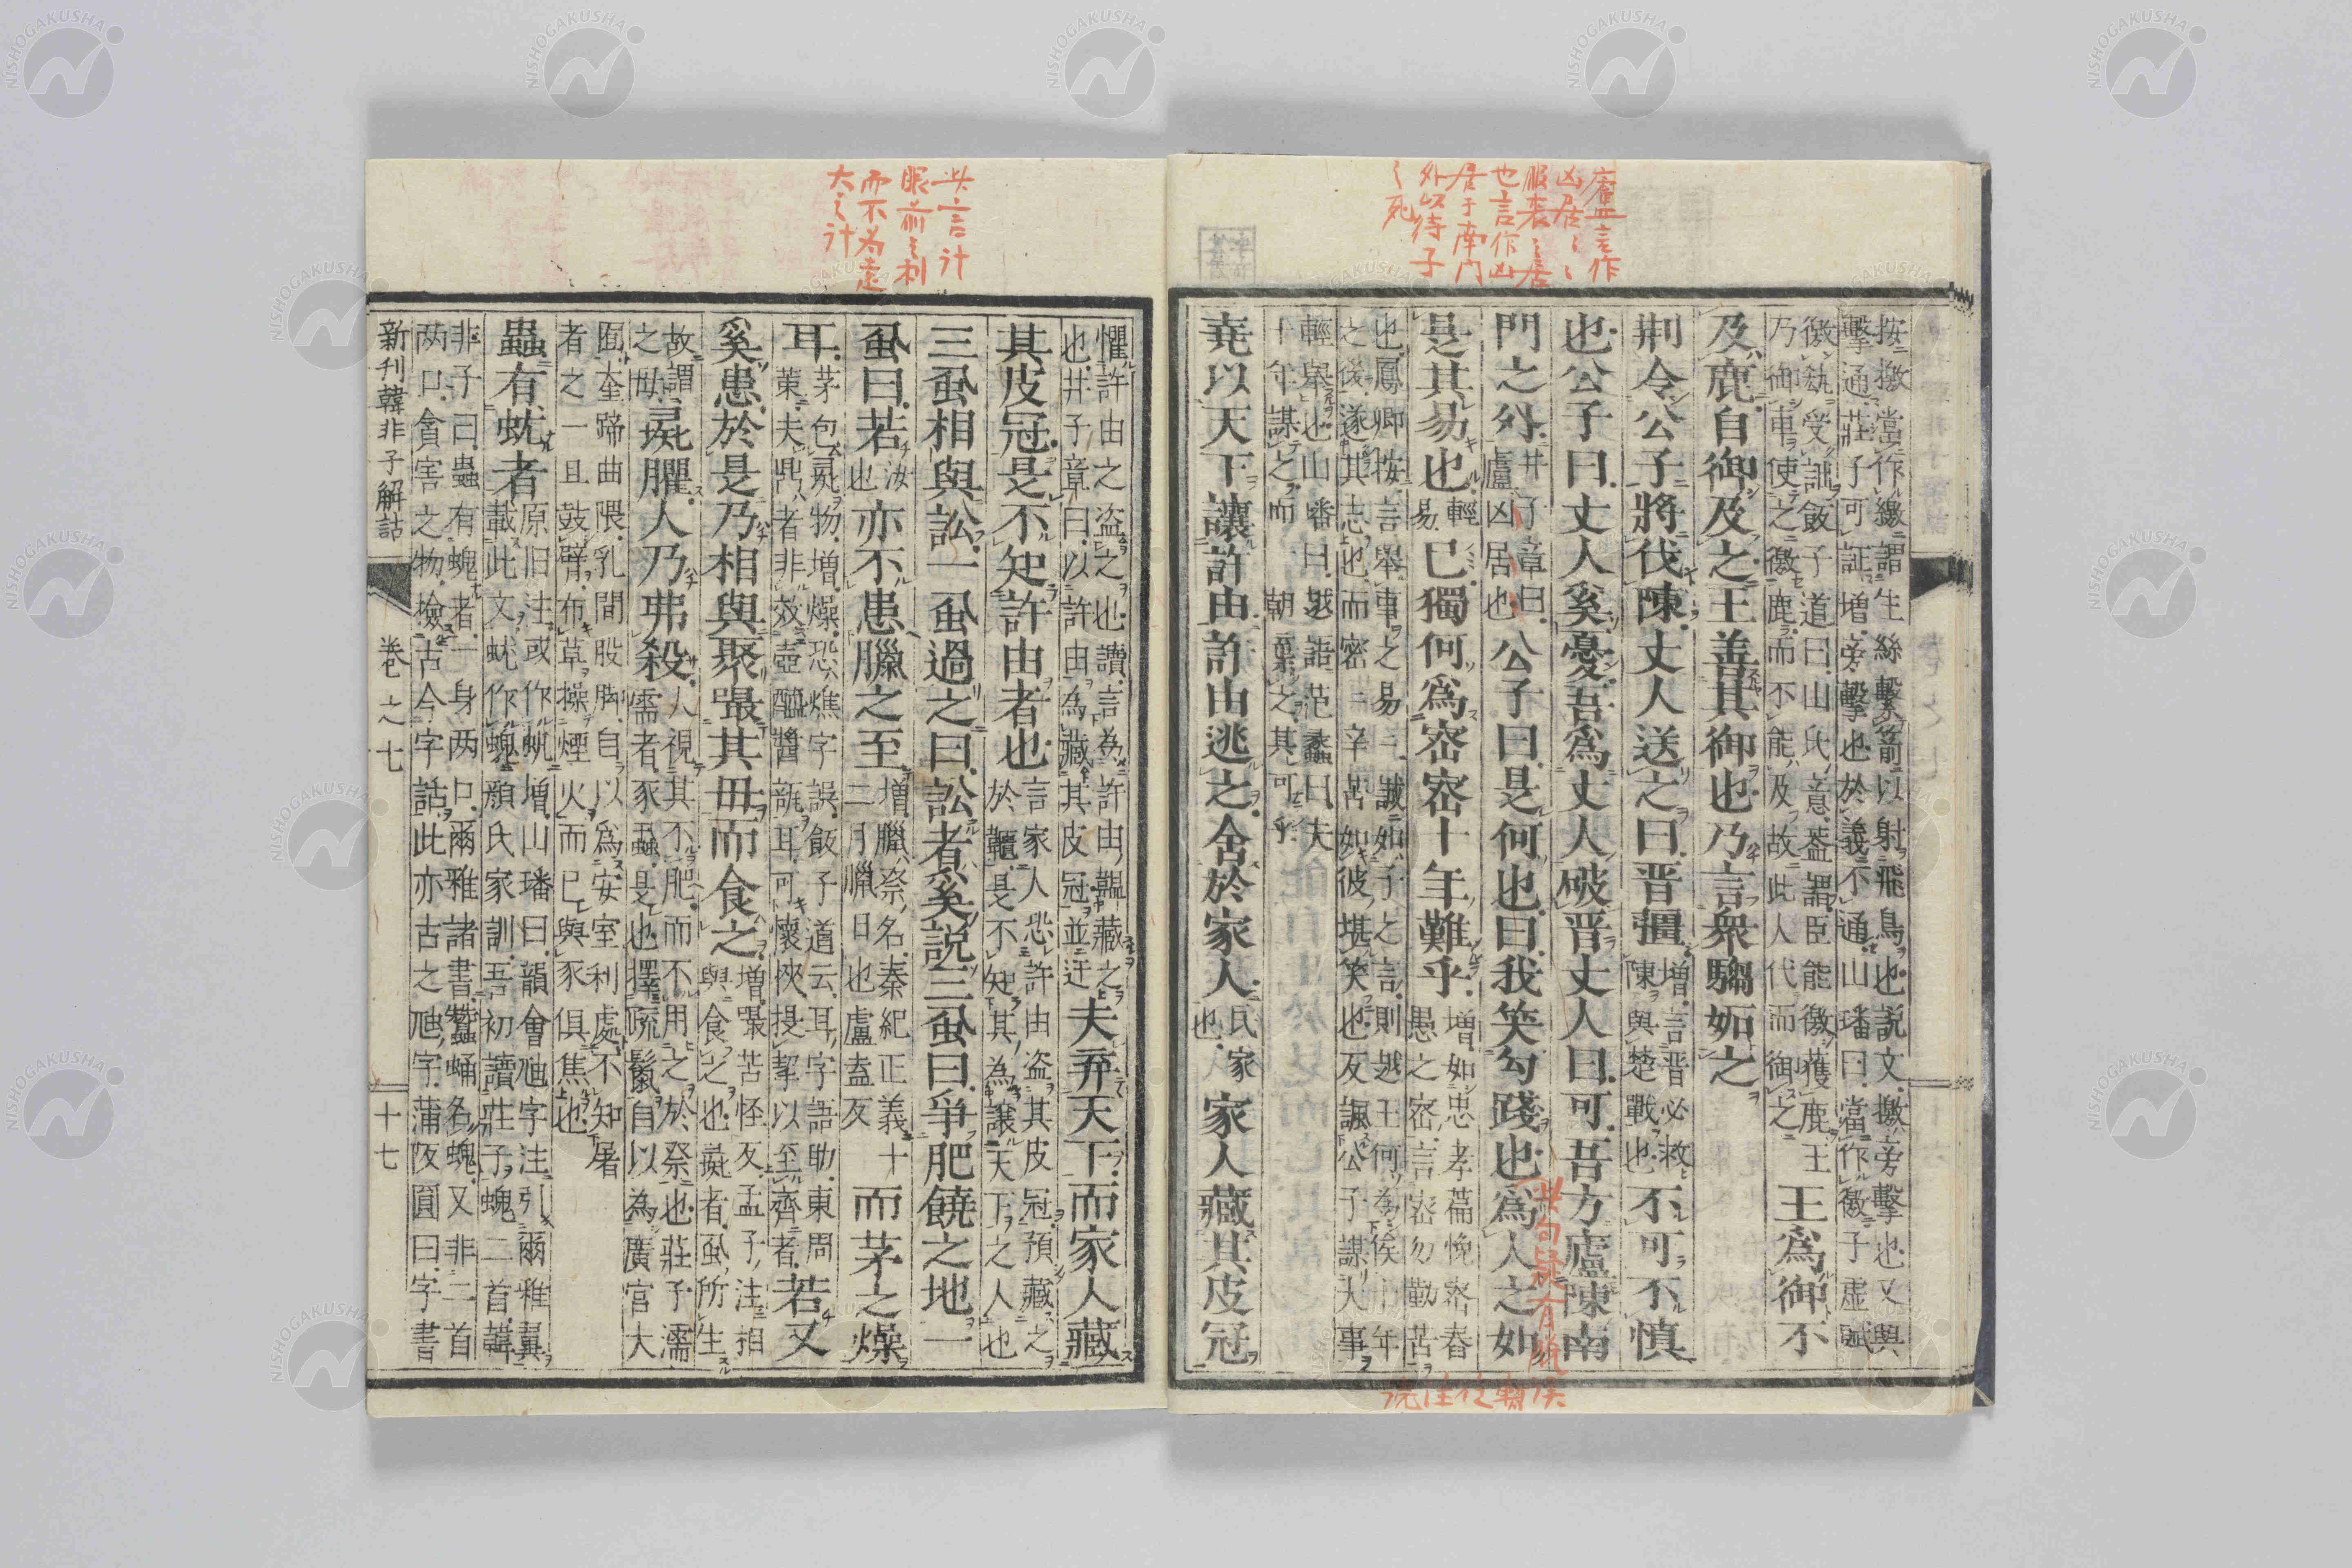 廬言作
凶居〻〻
服喪〻居
也言作凶
居于南門
外以待子
之死
按檄當作繳謂生絲繫箭以射飛鳥也說文檄旁擊也又與
擊通莊子可証増旁擊也於義不通山璠曰當作徼子虚賦
徼𠊱受詘飯子道曰山氏意蓋謂臣能徼獲鹿王
乃御車使之徼鹿而不能及故此人代而御之
王爲御不
及鹿自御及之王善其御也乃言衆騶妬之
荆令公子將伐陳丈人送之曰晋彊
増言晋必救
陳與楚戰也
不可不慎
也公子曰丈人奚憂吾爲丈人破晋丈人曰可吾方廬陳南
門之外
井子章曰
廬凶居也
公子曰是何也曰我笑勾踐也爲人之如
是其易也
輕
易
已獨何爲密密十年難乎
増如忠孝篇悗密舂
愚之密言密勿勤苦
也鳳卿按言舉事之易誠如子之言則越王何為俟十年
之後遂其志也而密二辛苦如彼堪笑也反諷公子謀大事
輕舉也山璠曰越語范蠡曰夫
十年謀之而一朝棄之其可乎
堯以天下讓許由許由逃之舍於家人
氏家
也
家人藏其皮冠
此句疑有脱誤
此言計
眼前之利
而不為遠
大之計
懼許由之盗之也讀言為許由韞藏之
也井子章曰以許由為藏其皮冠並迂
夫弃天下而家人藏
其皮冠是不知許由者也
言家人恐許由盗其皮冠預藏之
於韞是不知其為讓天下之人也
三虱相與訟一虱過之曰訟者奚說三虱曰爭肥饒之地一
虱曰若
汝
也
亦不患臘之至
増臘祭名秦紀正義十
二月臘日也盧盍反
而茅之燥
耳
茅包㞑物増燥恐燋字誤飯子道云耳字語助東周
策夫鼎者非效壺醯醬甀耳可懷挾提挈以至齊者
若又
奚患於是乃相與聚嘬其毋而食之
増嘬苦怪反孟子注相
與食之也㠜者虱所生
故謂
之母
彘臞人乃弗殺
人視其不肥而不用之於祭也莊子濡
濡者豕蝨是也擇疏鬣自以為廣宫大
囿奎蹄曲隈乳間股脚自以為安室利處不知屠
者之一旦鼓臂布草操煙火而已與豕俱焦也
蟲有蚘者
原旧注或作蚖増山璠曰韻會虺字注引爾雅翼
載此文蚘作螝顔氏家訓吾初讀莊子螝二首韓
非子曰蟲有螝者一身两口爾雅諸書蠶蛹名螝又非二首
两口貪害之物撿古今字詁此亦古之虺字蒲阪圓曰字書
新刊韓非子解詁
卷之七
十七
NISHOGAKUSHA